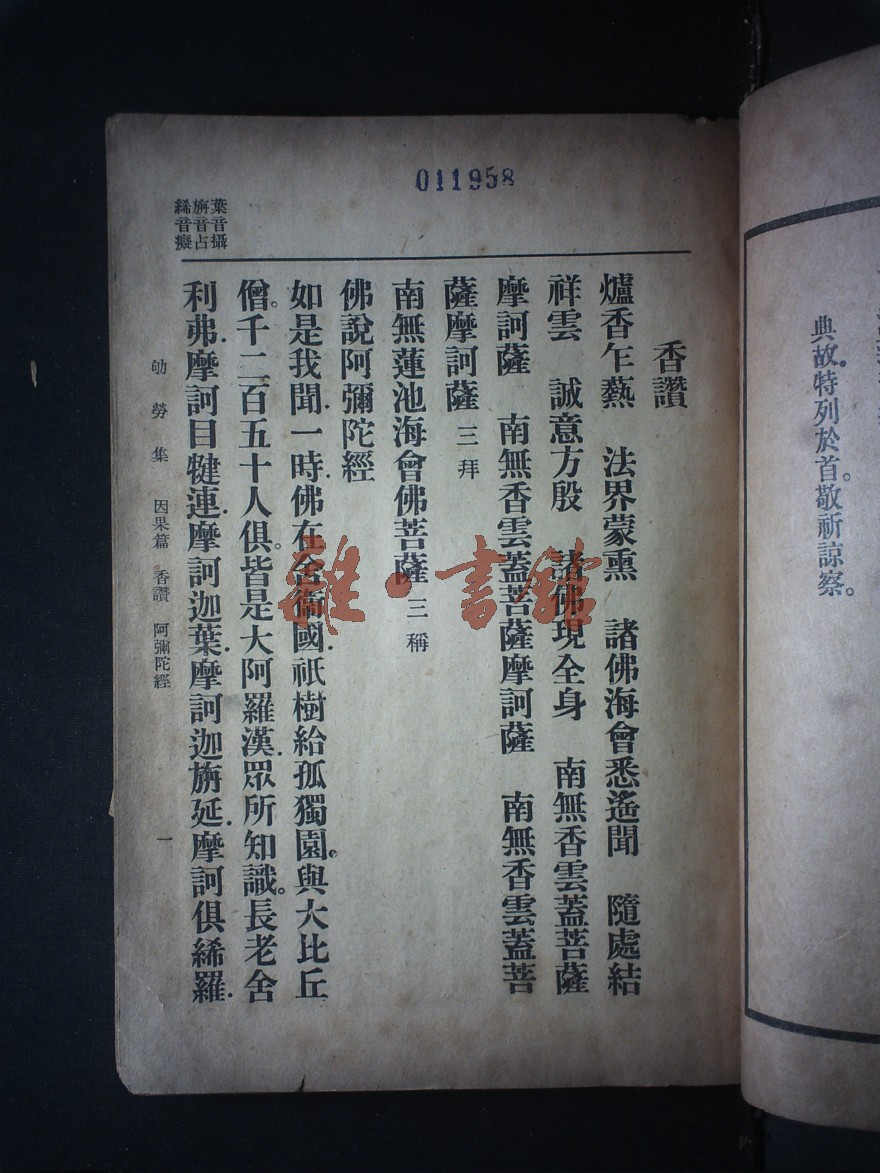 011958
葉音攝
旃音占
絺音癡
香讚
爐香乍爇　法界蒙熏　諸佛海會悉遙聞　隨處結
祥雲　誠意方殷　諸佛現全身　南無香雲蓋菩薩
摩訶薩　南無香雲蓋菩薩摩訶薩　南無香雲蓋菩
薩摩訶薩 三拜
南無蓮池海會佛菩薩 三稱
佛說阿彌陀經
如是我聞．一時．佛在舍衞國．祇樹給孤獨園。與大比丘
僧。千二百五十人俱。皆是大阿羅漢．眾所知識。長老舍
利弗．摩訶目犍連．摩訶迦葉．摩訶迦旃延．摩訶俱絺羅．
劬勞集　因果篇　香讚　阿彌陀經　一
典故．特列於首。敬祈諒察。
雜·書館